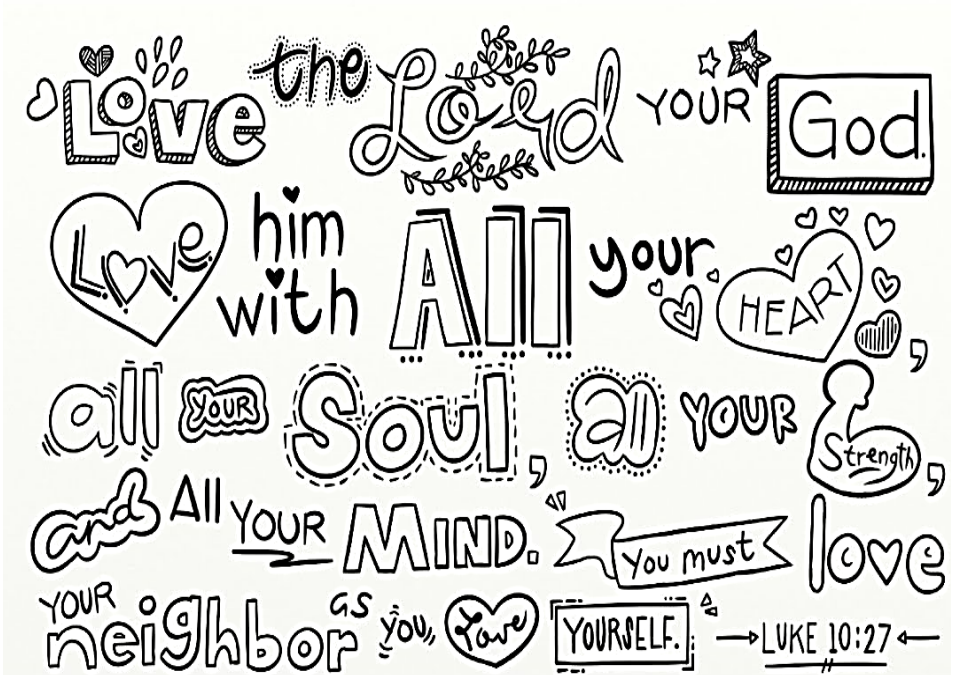 Love the Lord YOUR God.
Love him with All your HEART,
all YOUR Soul, all YOUR Strength,
and All YOUR MIND. You must love
YOUR neighbor as you love YOURSELF. LUKE 10:27